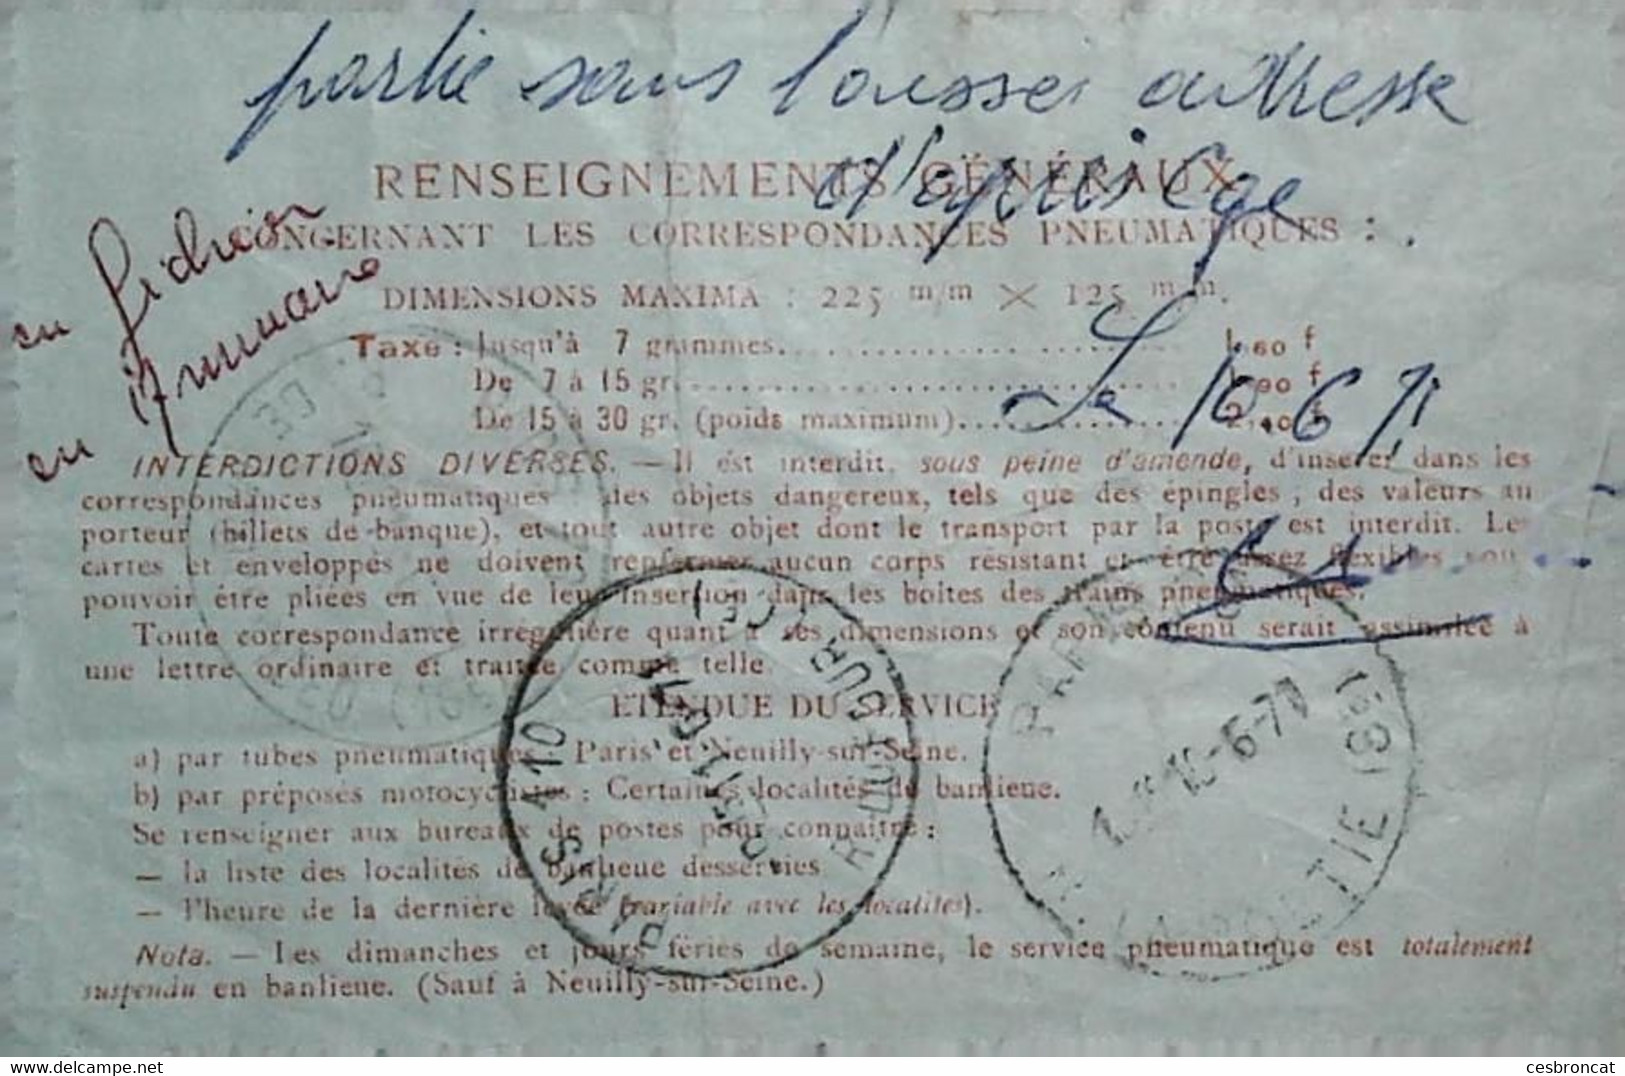 partie sans laisser adresse
d'après Cge
RENSEIGNEMENTS GÉNÉRAUX
CONCERNANT LES CORRESPONDANCES PNEUMATIQUES :
vu fichier
vu annuaire
DIMENSIONS MAXIMA : 225 m/m × 125 m/m.
Taxe : Jusqu'à 7 grammes. 1.60 f
De 7 à 15 gr. 1.90 f
De 15 à 30 gr. (poids maximum). 2.40 f
Le 10.6.71
INTERDICTIONS DIVERSES. — Il est interdit, sous peine d'amende, d'insérer dans les
correspondances pneumatiques des objets dangereux, tels que des épingles, des valeurs au
porteur (billets de banque), et tout autre objet dont le transport par la poste est interdit. Les
cartes et enveloppes ne doivent renfermer aucun corps résistant et être assez flexibles pour
pouvoir être pliées en vue de leur insertion dans les boîtes des trains pneumatiques.
Toute correspondance irrégulière quant à ses dimensions et son contenu serait assimilée à
une lettre ordinaire et traitée comme telle.
ÉTENDUE DU SERVICE
a) par tubes pneumatiques : Paris et Neuilly-sur-Seine.
b) par préposés motocyclistes : Certaines localités de banlieue.
Se renseigner aux bureaux de postes pour connaître :
— la liste des localités de banlieue desservies
— l'heure de la dernière levée (variable avec les localités).
Nota. — Les dimanches et jours fériés de semaine, le service pneumatique est totalement
suspendu en banlieue. (Sauf à Neuilly-sur-Seine.)
PARIS 110
10-6-71
PARIS
LA BOETIE (8e)
10-6-71
cesbroncat